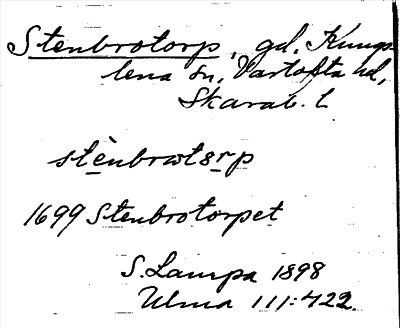 Stenbrotorp, gd, Kungs-
lena sn, Vartofta hd,
Skarab. l
stènbrωtsrp
1699 Stenbrotorpet
S. Lampa 1898
Ulma 111:422.